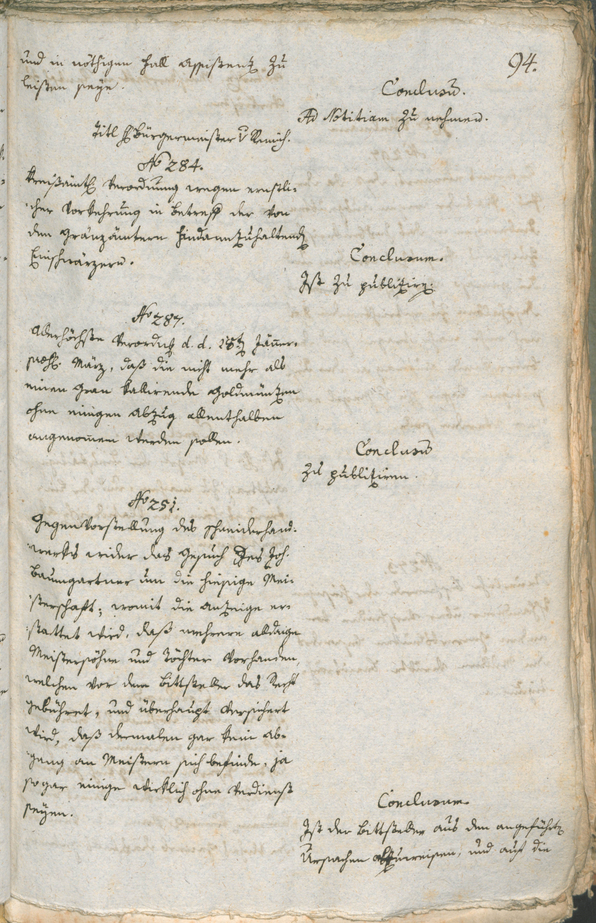 94.
und in nöthigen Fall Assistenz zu
leisten seye.
Conclusū.
Ad Notitiam zu nehmen.
Titl H Bürgermeister
No 284.
Kreisämtl Verordnung wegen ernstli-
cher Vorkehrung in Betref der von
den Gränzämtern hindanzuhaltend
Einschwärzern.
Conclusum.
Ist zu publizirn.
No 287.
Allerhöchste Verordng d. d. Jäner
März, daß die nicht mehr als
einen Gran kallirende Goldmünzen
ohne einigen Abzug allenthalben
angenommen werden sollen.
Conclusū
zu publiziren.
No 251.
Gegenvorstellung des Schneiderhand-
werks wider das Gesuch des Joh.
Baumgartner um die hiesige Mei-
sterschaft; womit die Anzeige er-
stattet wird, daß mehrere alldasige
Meistersöhne und Töchter vorhanden,
welchen vor dem Bittsteller das Recht
gebühret; und überhaupt versichert
wird, daß dermalen gar kein Ab-
gang an Meistern sich befinde, ja
sogar einige wirklich ohne Verdienst
seyen.
Conclusum
Ist der Bittsteller aus den angeführt
Ursachen abzuweisen, und auf die